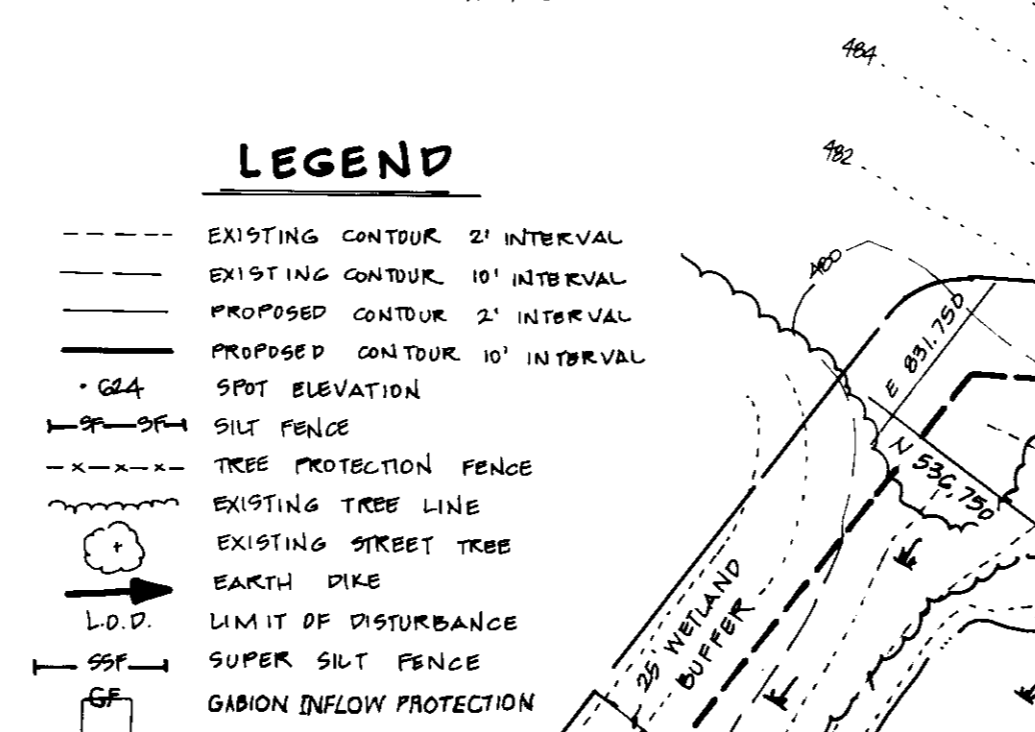 LEGEND
EXISTING CONTOUR 2' INTERVAL
EXISTING CONTOUR 10' INTERVAL
PROPOSED CONTOUR 2' INTERVAL
PROPOSED CONTOUR 10' INTERVAL
• 624 SPOT ELEVATION
SF SF SILT FENCE
x x x TREE PROTECTION FENCE
EXISTING TREE LINE
+ EXISTING STREET TREE
EARTH DIKE
L.O.D. LIMIT OF DISTURBANCE
SSF SUPER SILT FENCE
GF GABION INFLOW PROTECTION
484
482
480
E 831,750
N 536,750
25' WETLAND
BUFFER